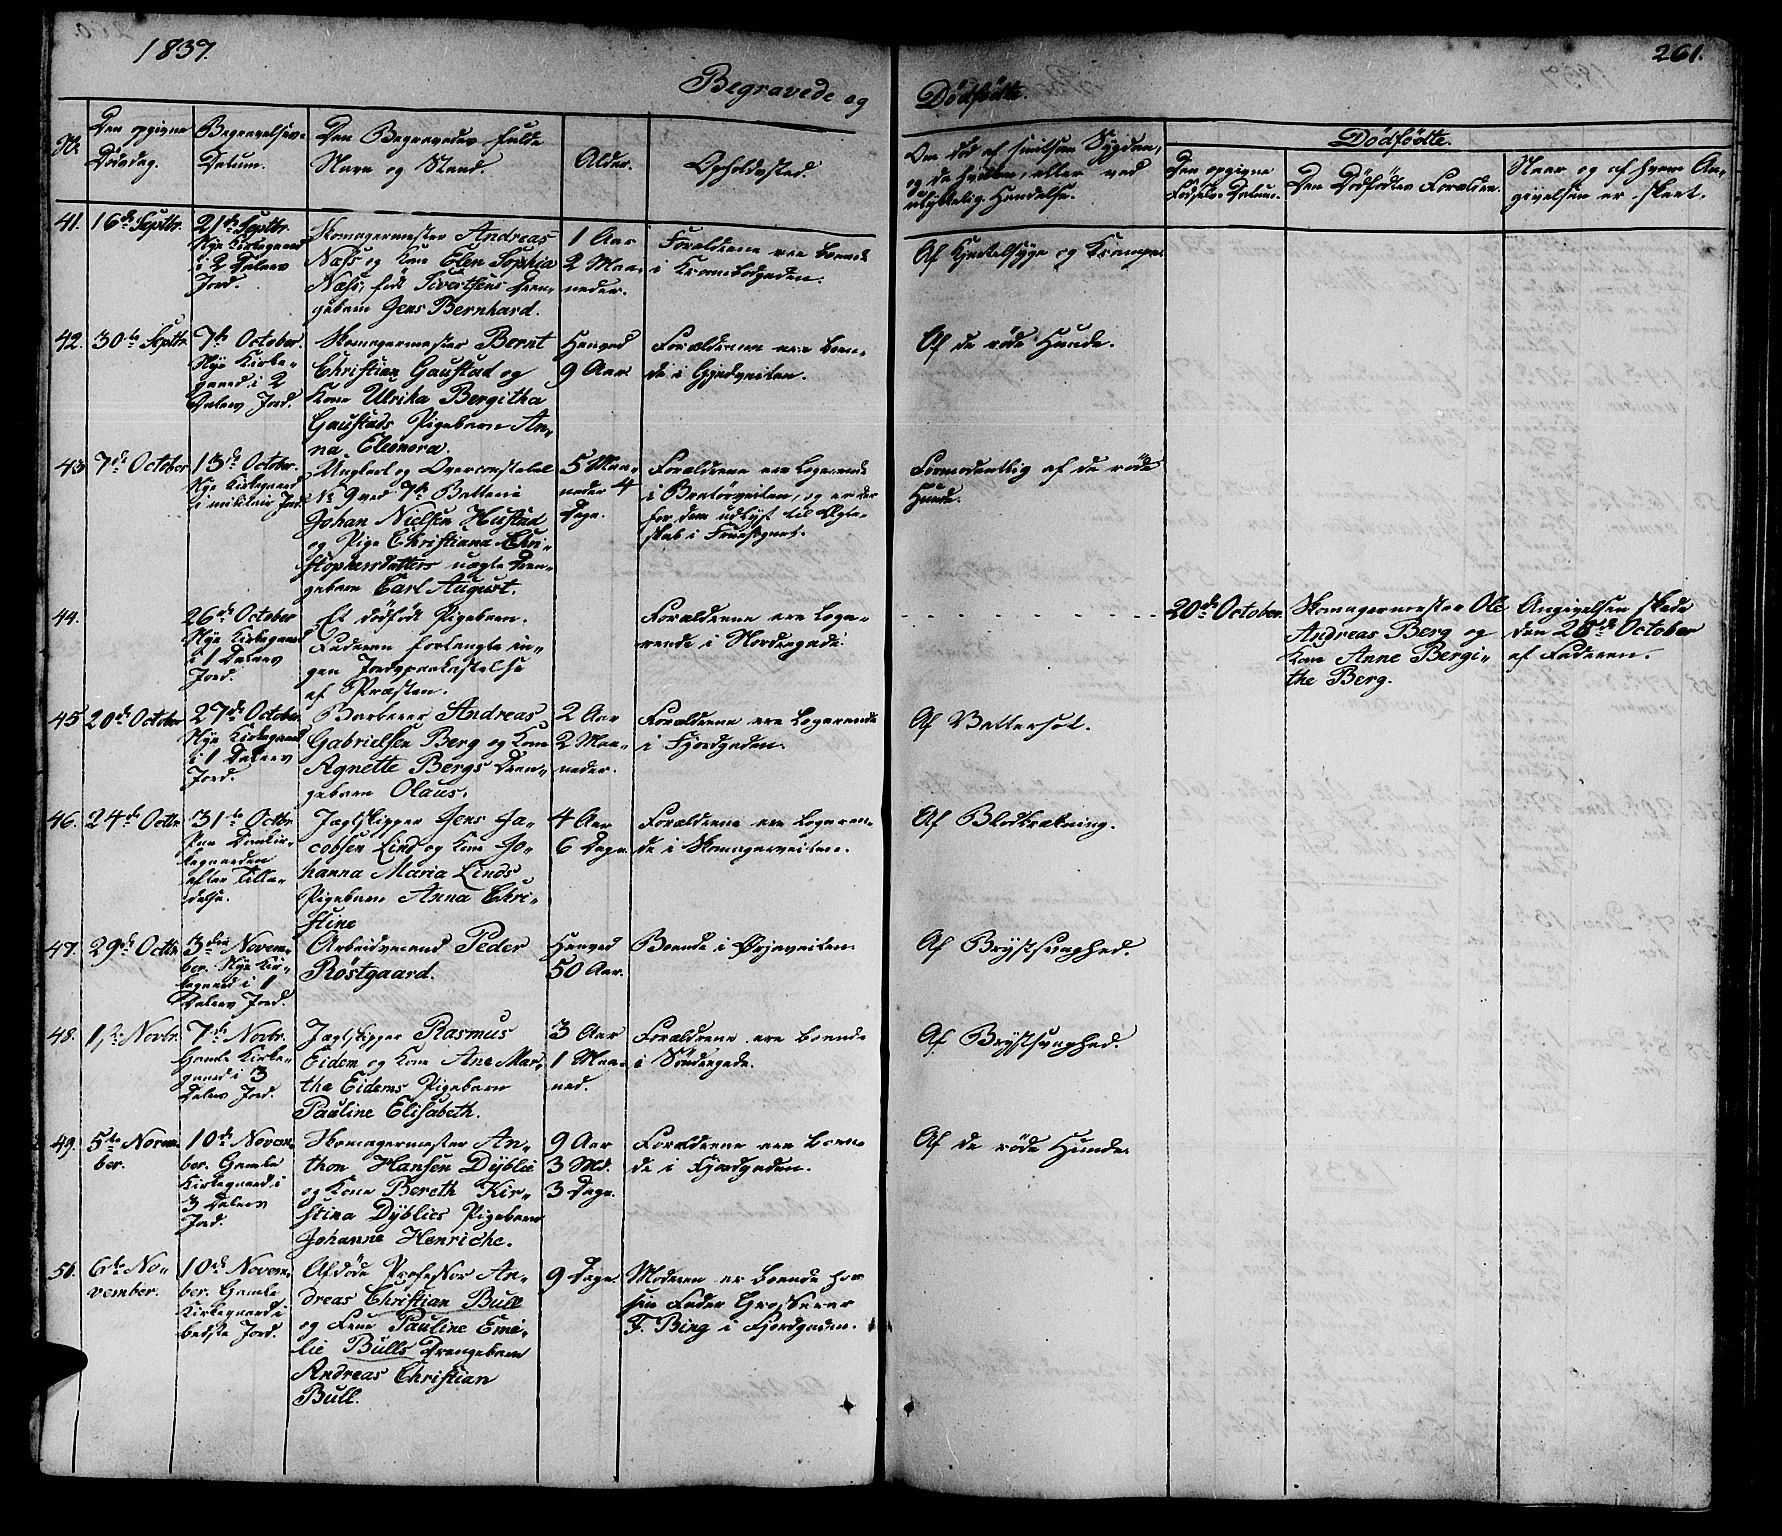 1837.
261.
Begravede og
Dödfödte.
No
Den opgivne
Dödsdag.
Begravelses-
Datum.
Den Begravedes fulde
Navn og Stand.
Alder.
Opholdssted.
Om död af smitsom Sygdom,
og da hvilken, eller ved
ulykkelig Hændelse.
Dödfödte.
Den opgivne
Födsels-Datum.
Den Dödfödtes Forældre.
Naar og af hvem An-
givelsen er skeet.
41.
16de Septbr.
21de Septbr.
Nye Kirkegaard
i 2 Dalers
Jord.
Skomagermester Andreas
Næss og Kone Elen Sophia
Næss, föd Sivertsens Dren-
gebarn Jens Bernhard.
1 Aar
2 Maa-
neder.
Forældrene ere boende
i Krambodgaden.
Af Kjertelsyge og Krampe.
42.
30te Septbr
7de October.
Nye Kirke-
gaard i 2
Dalers Jord.
Skomagermester Bernt
Christian Gaustad og
Kone Ulrika Bergitha
Gaustads Pigebarn An-
na Eleonora.
Henved
9 Aar.
Forældrene ere boen-
de i Gjedveiten.
Af de röde Hunde.
43
7de October
13de October.
Nye Kirkegaard
i militair Jord.
Ungkarl og Overconstabel
No 9 ved 7de Batterie
Johan Nielsen Hustad
og Pige Christiana Chri-
stophersdatters uægte Dren-
gebarn Carl August.
5 Maa-
neder 4
Dage.
Forældrene ere logerende
i Bratörveiten, og er der
for dem udlyst til Ægte-
skab i Fruesognet.
Formodentlig af de röde
Hunde.
44.
26de October
Nye Kirkegaard
i 1 Dalers
Jord.
Et dödfödt Pigebarn.
Faderen forlangte in-
gen Jordpaakastelse
af Præsten.
Forældrene ere loge-
rende i Nordregade.
20de October.
Skomagermester Ole
Andreas Berg og
Kone Anne Bergi-
the Berg.
Angivelsen skede
den 26de October
af Faderen.
45
20de October
27de October.
Nye Kirkegaard
i 1 Dalers
Jord.
Barberer Andreas
Gabrielsen Berg og Kone
Agnette Bergs Dren-
gebarn Olaus.
2 Aar
2 Maa-
neder.
Forældrene ere logerende
i Fjordgaden.
Af Vattersot.
46.
24de Octbr
31te Octbr
Paa Domkir-
kegaarden
efter Tilla-
delse.
Jægtskipper Jens Ja-
cobsen Lind og Kone Jo-
hanna Maria Linds
Pigebarn Anna Chri-
stine
4 Aar
6 Dage.
Forældrene ere logeren-
de i Skomagerveiten.
Af Blodtrækning.
47.
29de Octbr
3die Novem-
ber. Nye Kir-
kegaard i 1
Dalers Jord.
Arbeidsmand Peder
Röstgaard.
Henved
50 Aar.
Boende i Örjaveiten.
Af Brystsvaghed.
48.
1ste Novbr.
7de Novbr.
Gamle Kirke-
gaard i 3
Dalers Jord.
Jægtskipper Rasmus
Eidem og Kone Ane Mar-
tha Eidems Pigebarn
Pauline Elisabeth.
3 Aar
1 Maa-
ned.
Forældrene ere boende
i Söndregade.
Af Brystsvaghed.
49.
5te Novem-
ber.
10de Novem-
ber. Gamle
Kirkegaard i
3 Dalers
Jord.
Skomagermester An-
thon Hansen Dyblie
og Kone Bereth Kir-
stina Dyblies Pigebarn
Johanne Henriche.
9 Aar
3 Md.
3 Dage.
Forældrene ere boen-
de i Fjordgaden.
Af de röde Hunde.
50.
6te No-
vember.
10de Novem-
ber. Gamle
Kirkegaard i
bedste Jord.
Afdöde Professor An-
dreas Christian Bull
og Frue Pauline Emi-
lie Bulls Drengebarn
Andreas Christian
Bull.
9 Dage.
Moderen er boende hos
sin Fader Grosserer
F. Bing i Fjordgaden.